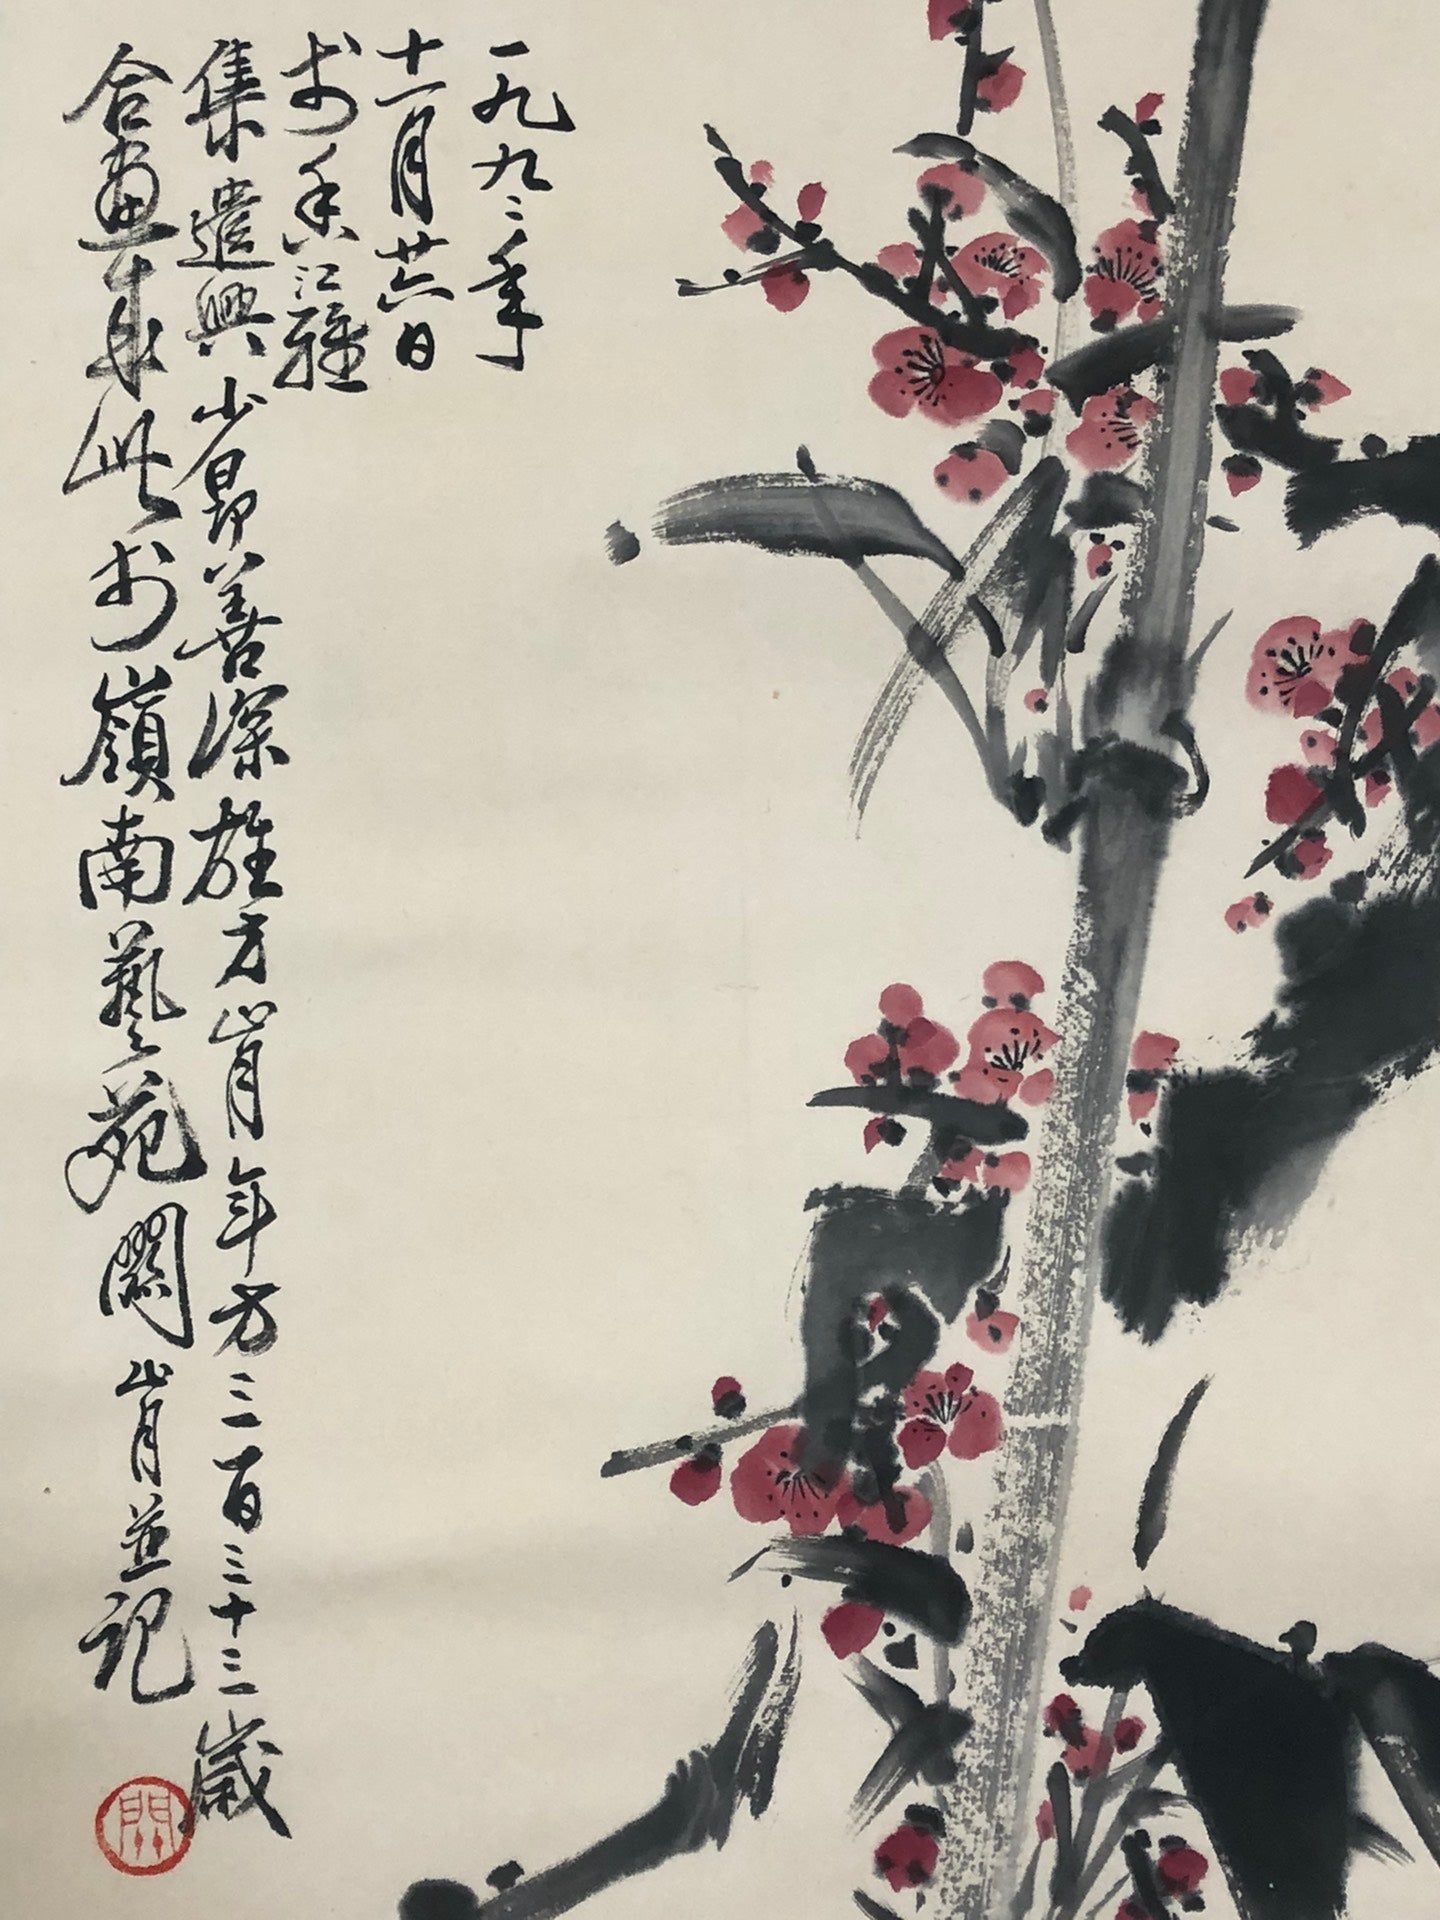 一九九二年
十一月廿六日
於香江雅
集遣興少昂善深雄方山月年方三百三十三歲
合畫成此於嶺南藝苑關山月並記
關